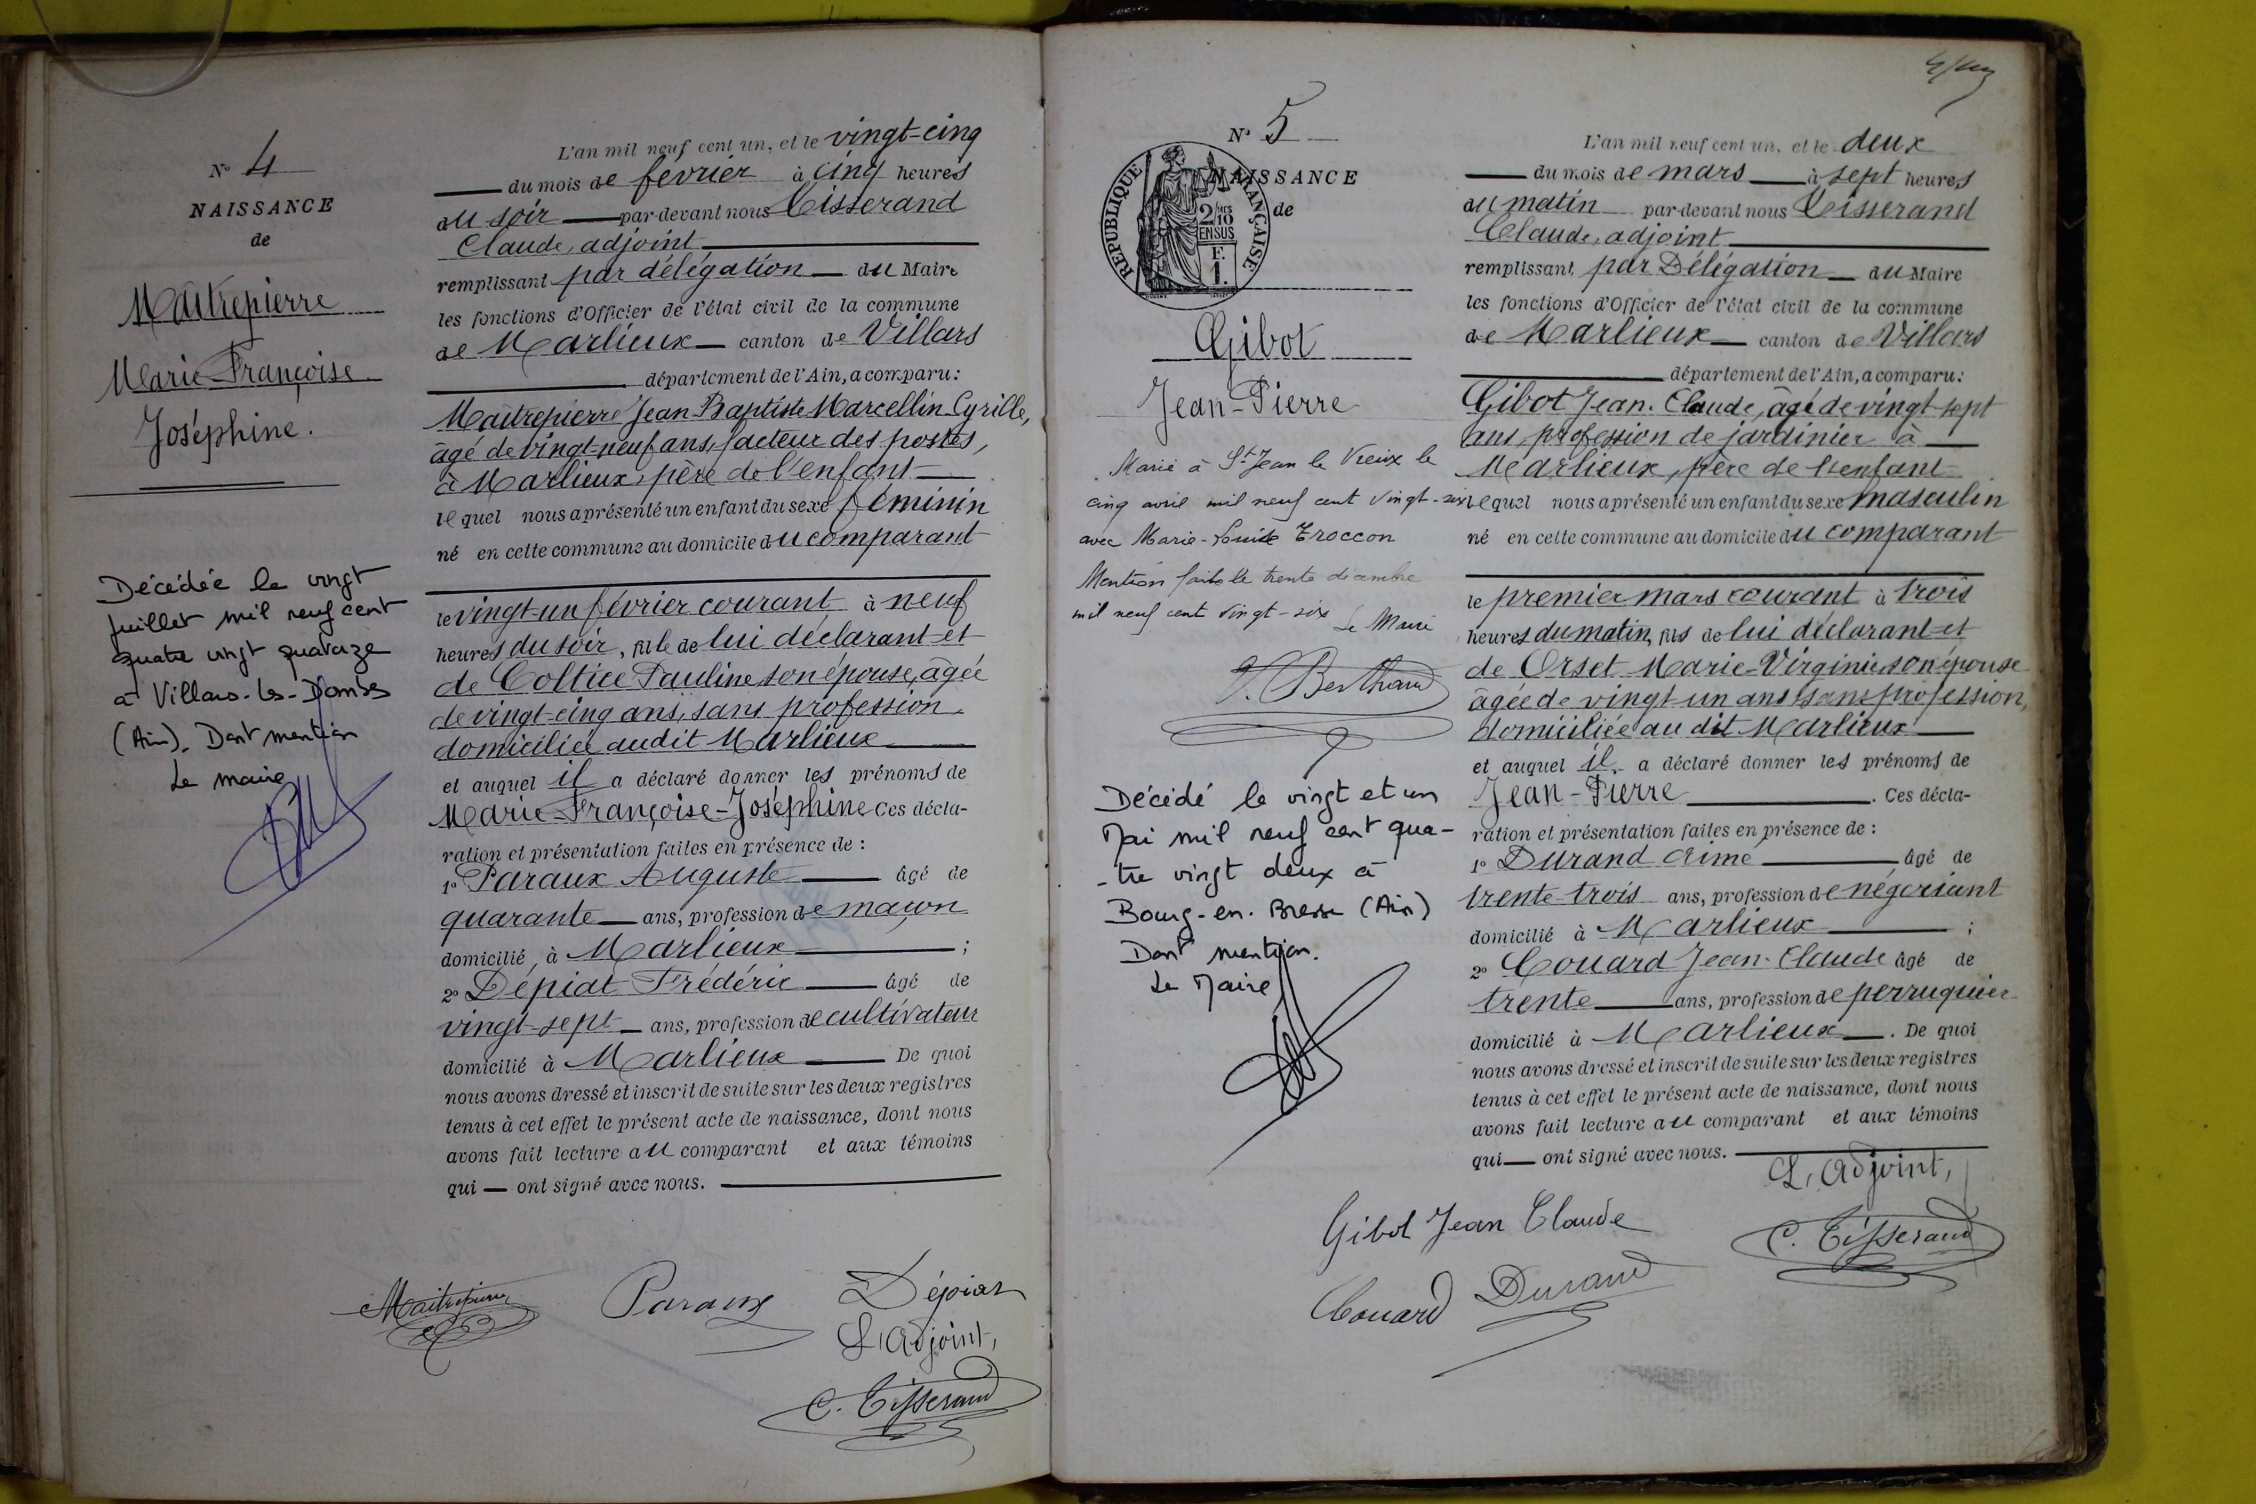 N° 4
NAISSANCE
de
Maîtrepierre
Marie-Françoise
Joséphine.
Décédée le vingt
juillet mil neuf cent
quatre vingt quatorze
à Villars-les-Dombes
(Ain). Dont mention
Le maire
L'an mil neuf cent un, et le vingt-cinq
du mois de février à cinq heures
du soir par-devant nous Tisserand
Claude, adjoint
remplissant par délégation du Maire
les fonctions d'Officier de l'état civil de la commune
de Marlieux canton de Villars
département de l'Ain, a comparu:
Maîtrepierre Jean-Baptiste Marcellin-Cyrille,
âgé de vingt-neuf ans, facteur des postes,
à Marlieux, père de l'enfant
lequel nous a présenté un enfant du sexe féminin
né en cette commune au domicile du comparant
le vingt-un février courant à neuf
heures du soir, fille de lui déclarant et
de Coltice Pauline son épouse, âgée
de vingt-cinq ans, sans profession
domiciliée audit Marlieux
et auquel il a déclaré donner les prénoms de
Marie-Françoise-Joséphine Ces décla-
ration et présentation faites en présence de :
1° Paraux Auguste âgé de
quarante ans, profession de maçon
domicilié à Marlieux ;
2° Dépiat Frédéric âgé de
vingt-sept ans, profession de cultivateur
domicilié à Marlieux De quoi
nous avons dressé et inscrit de suite sur les deux registres
tenus à cet effet le présent acte de naissance, dont nous
avons fait lecture au comparant et aux témoins
qui ont signé avec nous.
Maitrepierre Paraux Dépiat
L'Adjoint,
C. Tisserand
N° 5
NAISSANCE
de
REPUBLIQUE FRANÇAISE
2/10
EN SUS
F.
1.
Gibot
Jean-Pierre
Marié à St Jean le Vieux le
cinq avril mil neuf cent vingt-six
avec Marie-Louise Troccon
Mention faite le trente décembre
mil neuf cent vingt-six Le Maire
Décédé le vingt et un
Mai mil neuf cent qua-
-tre vingt deux à
Bourg-en-Bresse (Ain)
Dont mention.
Le Maire
L'an mil neuf cent un, et le deux
du mois de mars à sept heures
du matin par-devant nous Tisserand
Claude, adjoint
remplissant par Délégation du Maire
les fonctions d'Officier de l'état civil de la commune
de Marlieux canton de Villars
département de l'Ain, a comparu:
Gibot Jean-Claude, âgé de vingt-sept
ans, profession de jardinier à
Marlieux, père de l'enfant
lequel nous a présenté un enfant du sexe masculin
né en cette commune au domicile du comparant
le premier mars courant à trois
heures du matin, fils de lui déclarant et
de Orset Marie-Virginie son épouse
âgée de vingt-un ans, sans profession,
domiciliée au dit Marlieux
et auquel il a déclaré donner les prénoms de
Jean-Pierre. Ces décla-
ration et présentation faites en présence de :
1° Durand Aimé âgé de
trente-trois ans, profession de négociant
domicilié à Marlieux ;
2° Couard Jean-Claude âgé de
trente ans, profession de perruquier
domicilié à Marlieux. De quoi
nous avons dressé et inscrit de suite sur les deux registres
tenus à cet effet le présent acte de naissance, dont nous
avons fait lecture au comparant et aux témoins
qui ont signé avec nous.
L'Adjoint,
Gibot Jean Claude
C. Tisserand
Couard Durand